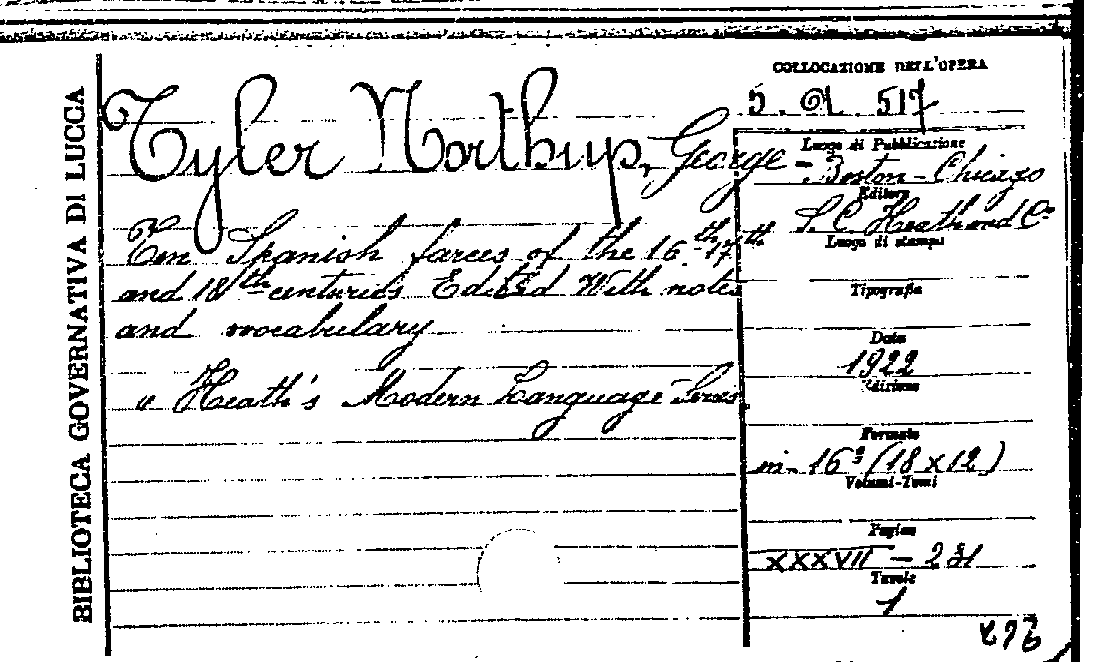 BIBLIOTECA GOVERNATIVA DI LUCCA
Tyler Northup, George -
Ten Spanish farces of the 16th 17th
and 18th centuries Edited With notes
and vocabulary
" Heath's Modern Language Series
COLLOCAZIONE DELL'OPERA
517
Luogo di Pubblicazione
Boston - Chicago
Editore
Heath and Co
Luogo di stampa
Tipografia
Data
1922
Edizione
Formato
in- 16° (18 x 12)
Volumi-Tomi
Pagine
XXXVII - 231
Tavole
1